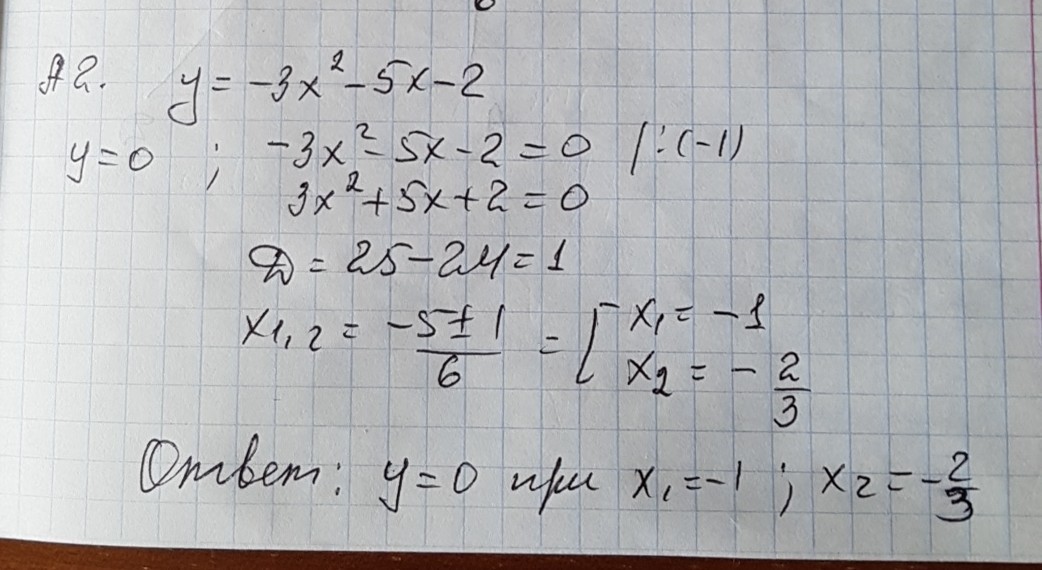 А2. y = -3x² - 5x - 2
y = 0 ; -3x² - 5x - 2 = 0 / : (-1)
3x² + 5x + 2 = 0
D = 25 - 24 = 1
x1,2 = (-5 ± 1)/6 = [ x₁ = -1
x₂ = - 2/3
Ответ: y = 0 при x₁ = -1 ; x₂ = - 2/3